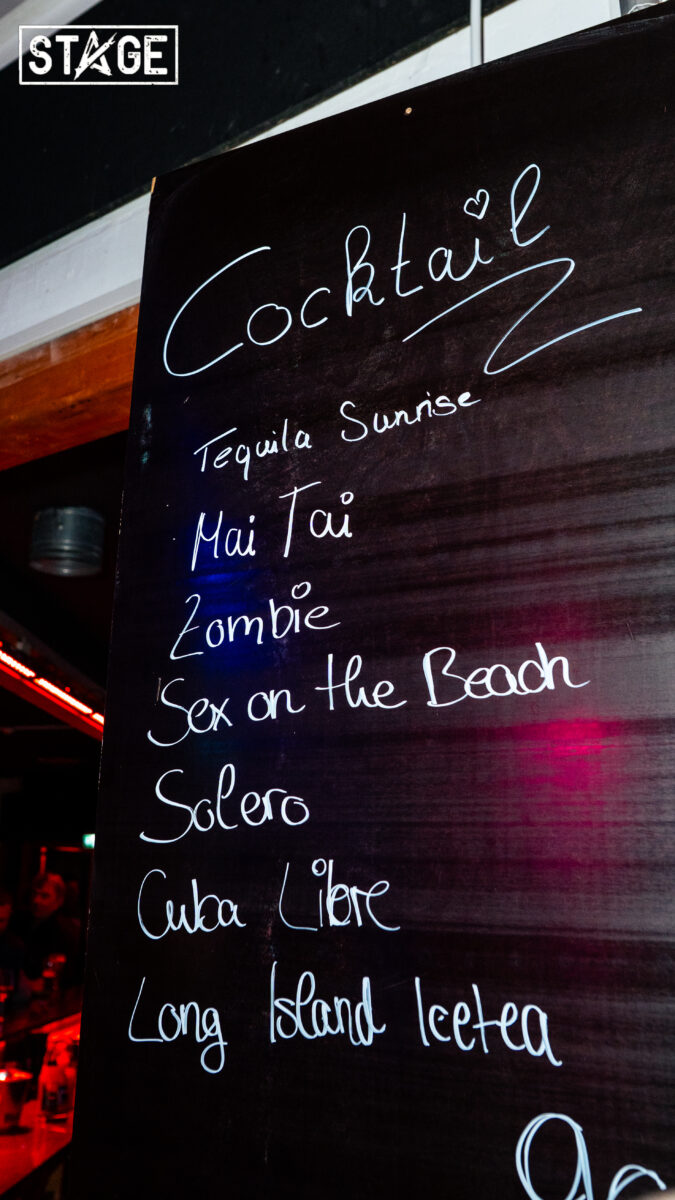 STAGE
Cocktail
Tequila Sunrise
Mai Tai
Zombie
Sex on the Beach
Solero
Cuba Libre
Long Island Icetea